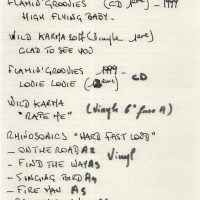 FLAMIN' GROOVIES (CD 1ere) - 1999
HIGH FLYING BABY -
WILD KARMA (Vingle 1ere)
GLAD TO SEE YOU
FLAMIN' GROOVIES 1999 - CD
LOUIE LOUIE
WILD KARMA (Vingle 6" face A)
"RAPE ME"
RHINOSONICS "HARD FAST LOUD"
- ON THE ROAD A2 Vinyl
- FIND THE WAY A3
- SINGING BIRD A4
- FIRE MAN A5